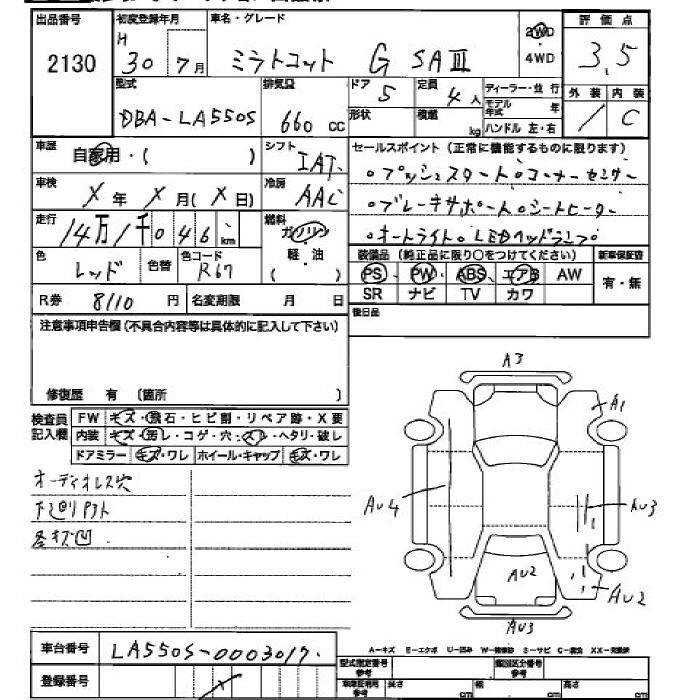 出品番号 初度登録年月 車名・グレード 評価点
2130 H 30年 7月 ミラトコット G SAⅢ 2WD ・ 4WD 3.5
型式 排気量 ドア 定員 ディーラー・並行 外装 内装
DBA-LA550S 660 cc 5 4人 モデル年式 年 / C
形状 積載 kg ハンドル 左・右
車歴 自家用・( ) シフト IAT セールスポイント(正常に機能するものに限ります)
車検 X年 X月(X日) 冷房 AAC 。プッシュスタート 。コーナーセンサー
走行 14万1千046km 燃料 ガソリン ・ 軽・油 ( ) 。ブレーキサポート 。シートヒーター
。オートライト 。LEDヘッドランプ
色 レッド 色替 色コード R67 装備品(純正品に限り○をつけてください) 新車保証書
PS PW ABS エアB AW 有・無
R券 8110円 名変期限 月 日 SR ナビ TV カワ
注意事項申告欄(不具合内容等は具体的に記入して下さい) 後日品
修復歴 有 (箇所 )
検査員記入欄 FW キズ・飛石・ヒビ割・リペア跡・X要
内装 キズ・汚レ・コゲ・穴・スレ・ヘタリ・破レ
ドアミラー キズ・ワレ ホイール・キャップ キズ・ワレ
オーディオレス穴
下廻りサビ
各キズ凹
A3
A1
AU4
AU3
AU2
AU2
AU3
車台番号 LA550S-0003017
A-キズ E-エクボ U-凹み W-補修跡 S-サビ C-腐食 XX-交換済
登録番号 型式指定番号 参考 類別区分番号 参考
車庫証明用 参考 長さ cm 幅 cm 高さ cm